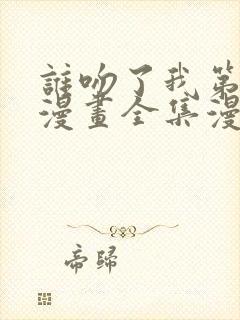 誰吻了我第
漫畫全集漫
帝歸